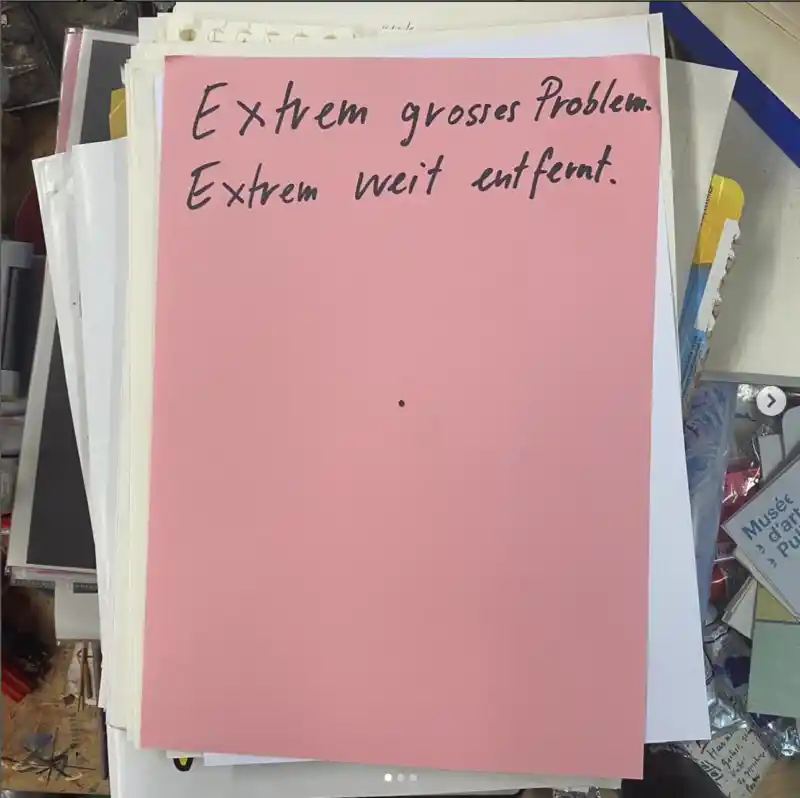 Extrem grosses Problem.
Extrem weit entfernt.
Musée
d'art
Pu